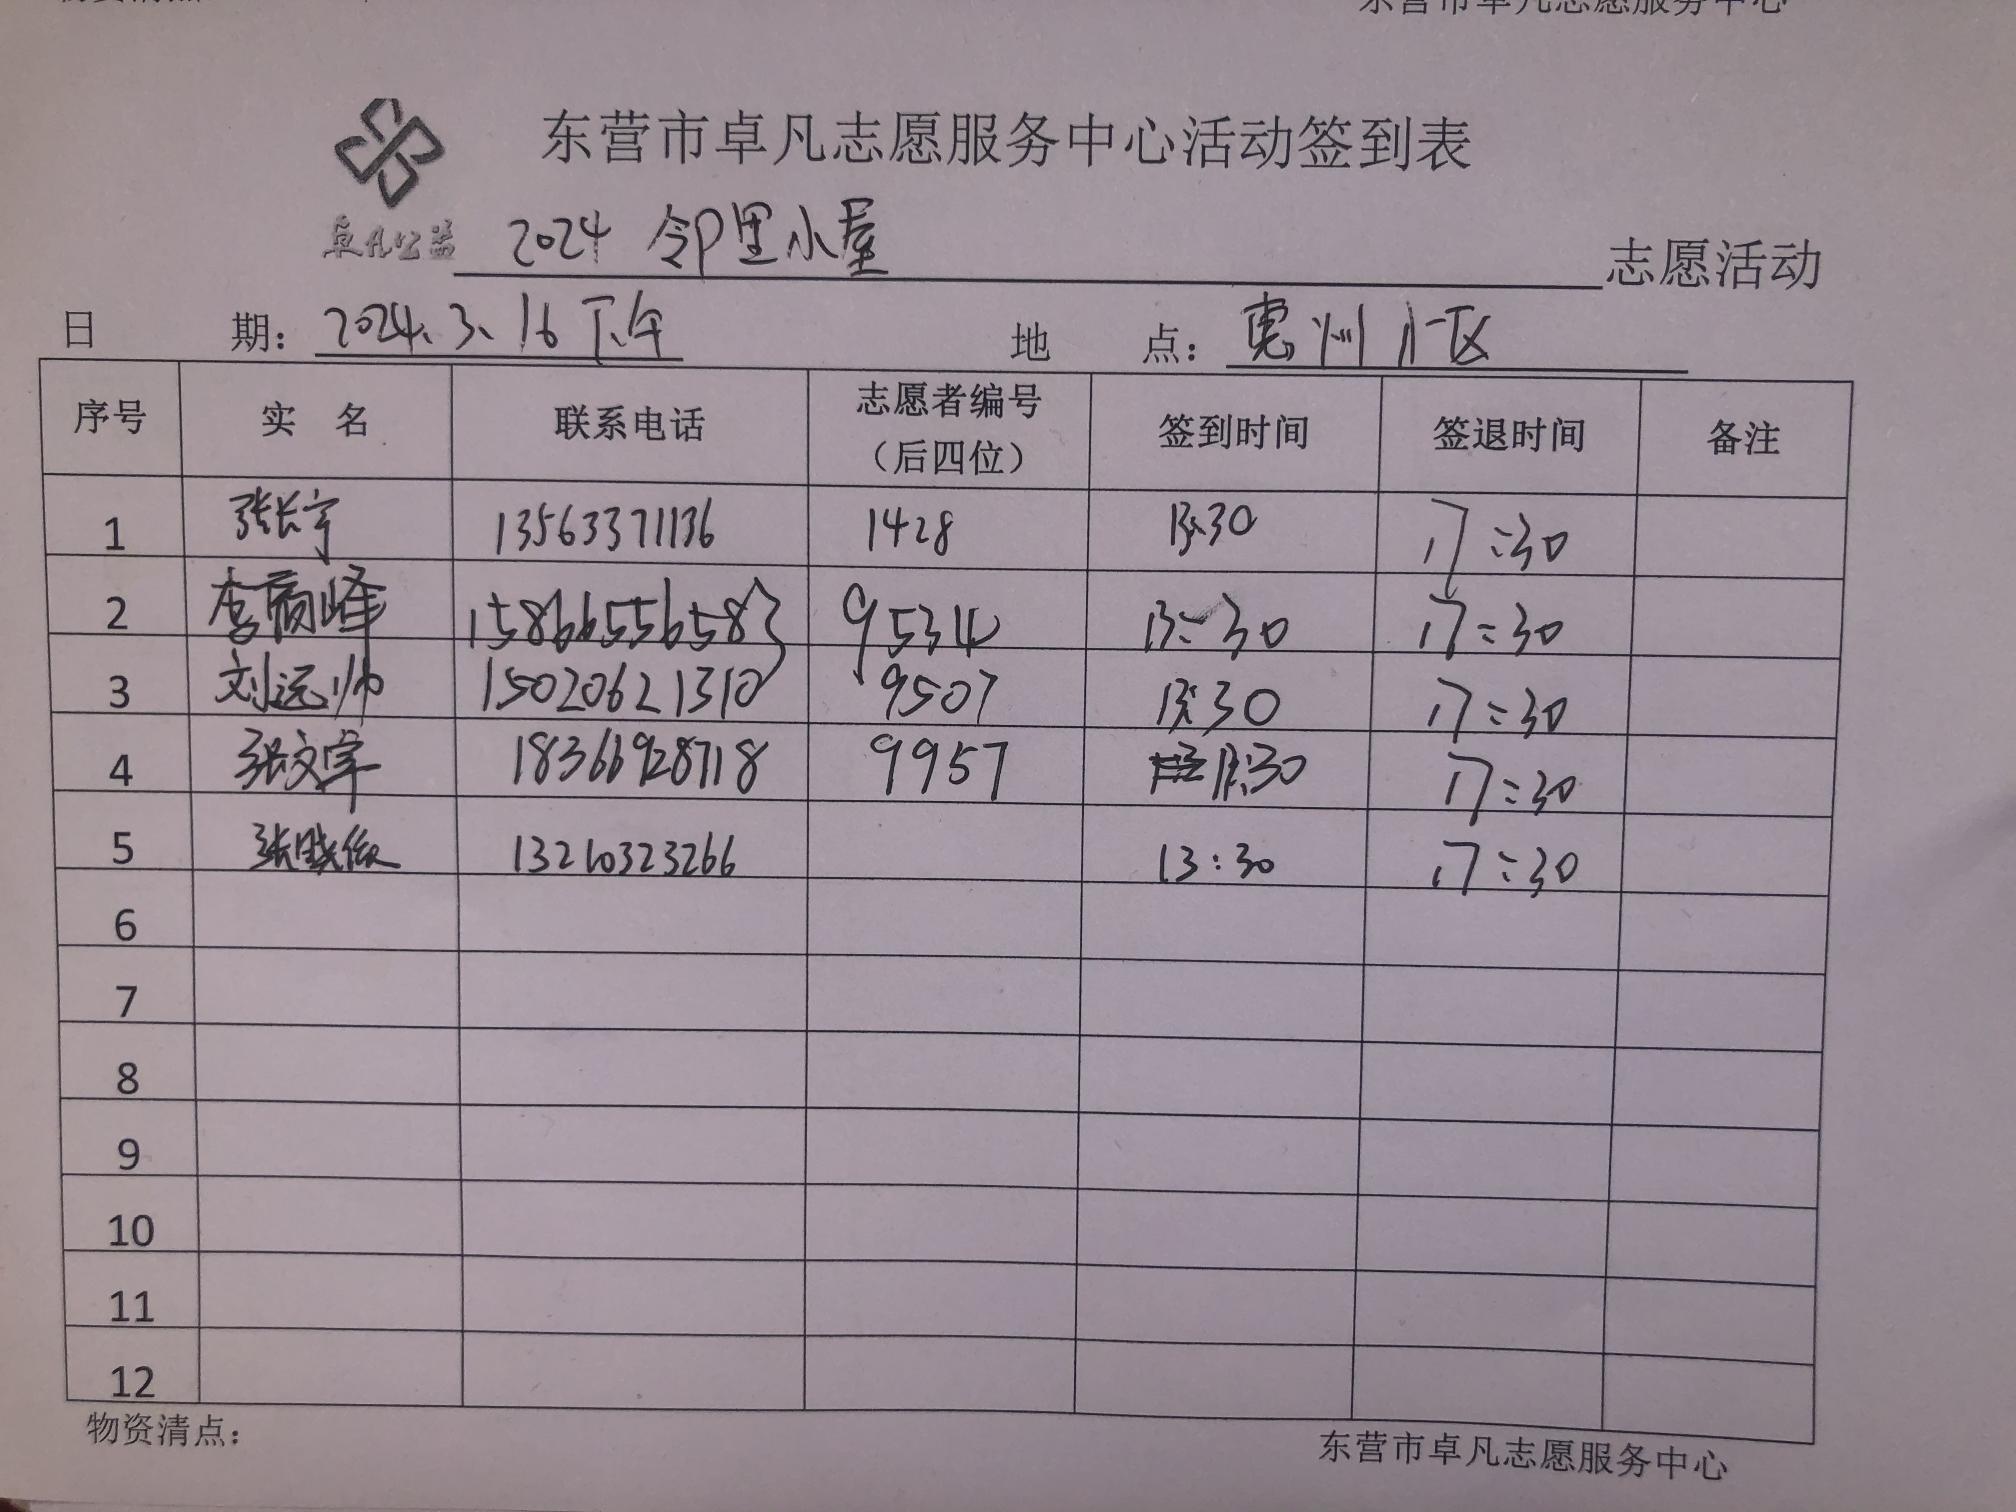 东营市卓凡志愿服务中心
东营市卓凡志愿服务中心活动签到表
卓凡公益 2024 邻里小屋 志愿活动
日 期: 2024.3.16 下午 地 点: 惠州小区
序号 实 名 联系电话 志愿者编号（后四位） 签到时间 签退时间 备注
1 张长宇 13563371136 1428 13:30 17:30
2 李 峰 15866556583 9534 13:30 17:30
3 刘远帅 15020621310 9507 13:30 17:30
4 张文宰 18366928718 9957 13:30 17:30
5 张晓 13210323266 13:30 17:30
6
7
8
9
10
11
12
物资清点: 东营市卓凡志愿服务中心